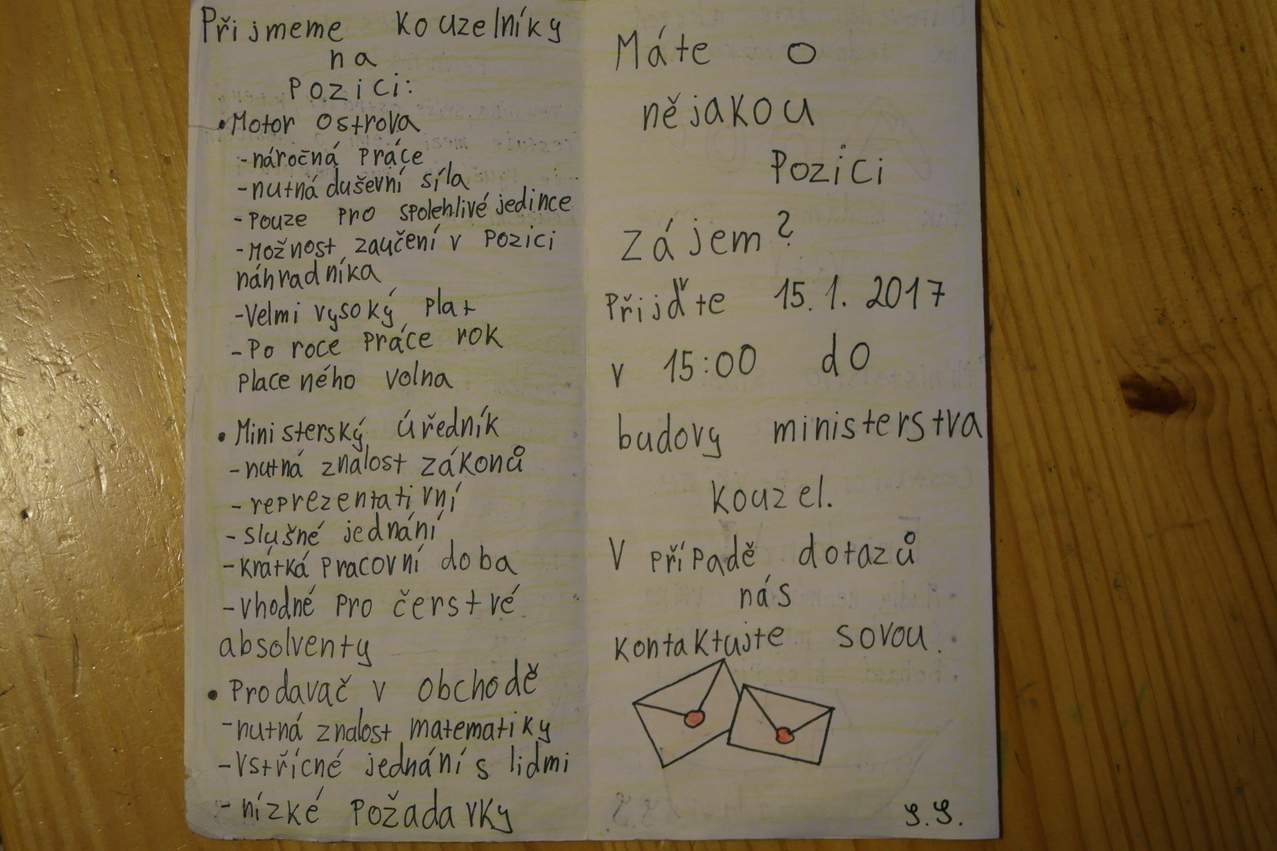 Přijmeme kouzelníky
na
pozici:
• Motor ostrova
- náročná práce
- nutná duševní síla
- pouze pro spolehlivé jedince
- možnost zaučení v pozici
náhradníka
- velmi vysoký plat
- po roce práce rok
placeného volna
• Ministerský úředník
- nutná znalost zákonů
- reprezentativní
- slušné jednání
- krátká pracovní doba
- vhodné pro čerstvé
absolventy
• Prodavač v obchodě
- nutná znalost matematiky
- vstřícné jednání s lidmi
- nízké požadavky
Máte o
nějakou
pozici
zájem?
Přijďte 15.1. 2017
v 15:00 do
budovy ministerstva
kouzel.
V případě dotazů
nás
kontaktujte sovou.